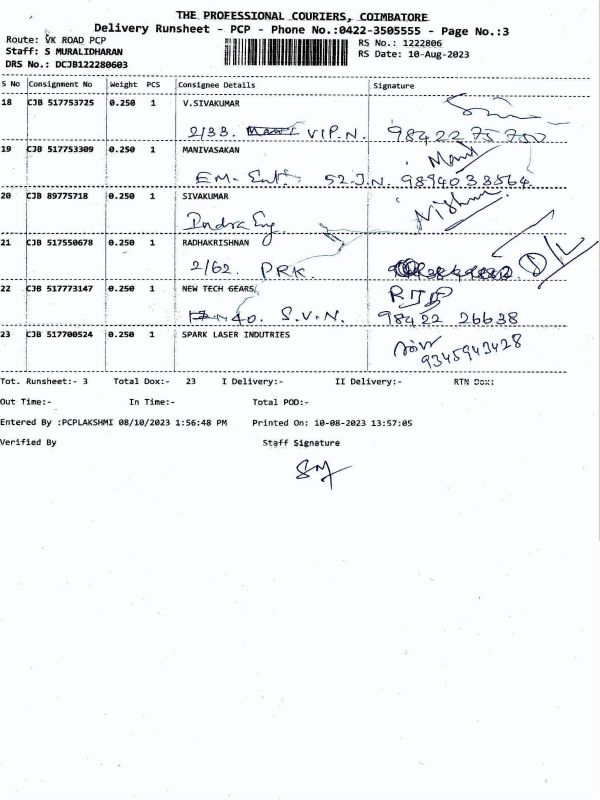 THE PROFESSIONAL COURIERS, COIMBATORE
Delivery Runsheet - PCP - Phone No.:0422-3505555 - Page No.:3
Route: VK ROAD PCP RS No.: 1222806
Staff: S MURALIDHARAN RS Date: 10-Aug-2023
DRS No.: DCJB122280603
S No Consignment No Weight PCS Consignee Details Signature
18 CJB 517753725 0.250 1 V.SIVAKUMAR
2/33. VIP.N. 98422 75 750
19 CJB 517753309 0.250 1 MANIVASAKAN Mani
EM- Ent. 52 J.N. 9894033564
20 CJB 89775718 0.250 1 SIVAKUMAR
Indra Eng
21 CJB 517550678 0.250 1 RADHAKRISHNAN
2/62. PRK. D/L
22 CJB 517773147 0.250 1 NEW TECH GEARS
40. S.V.N. 98422 26638
23 CJB 517700524 0.250 1 SPARK LASER INDUTRIES
9345943428
Tot. Runsheet:- 3 Total Dox:- 23 I Delivery:- II Delivery:- RTN Dox:
Out Time:- In Time:- Total POD:-
Entered By :PCPLAKSHMI 08/10/2023 1:56:48 PM Printed On: 10-08-2023 13:57:05
Verified By Staff Signature